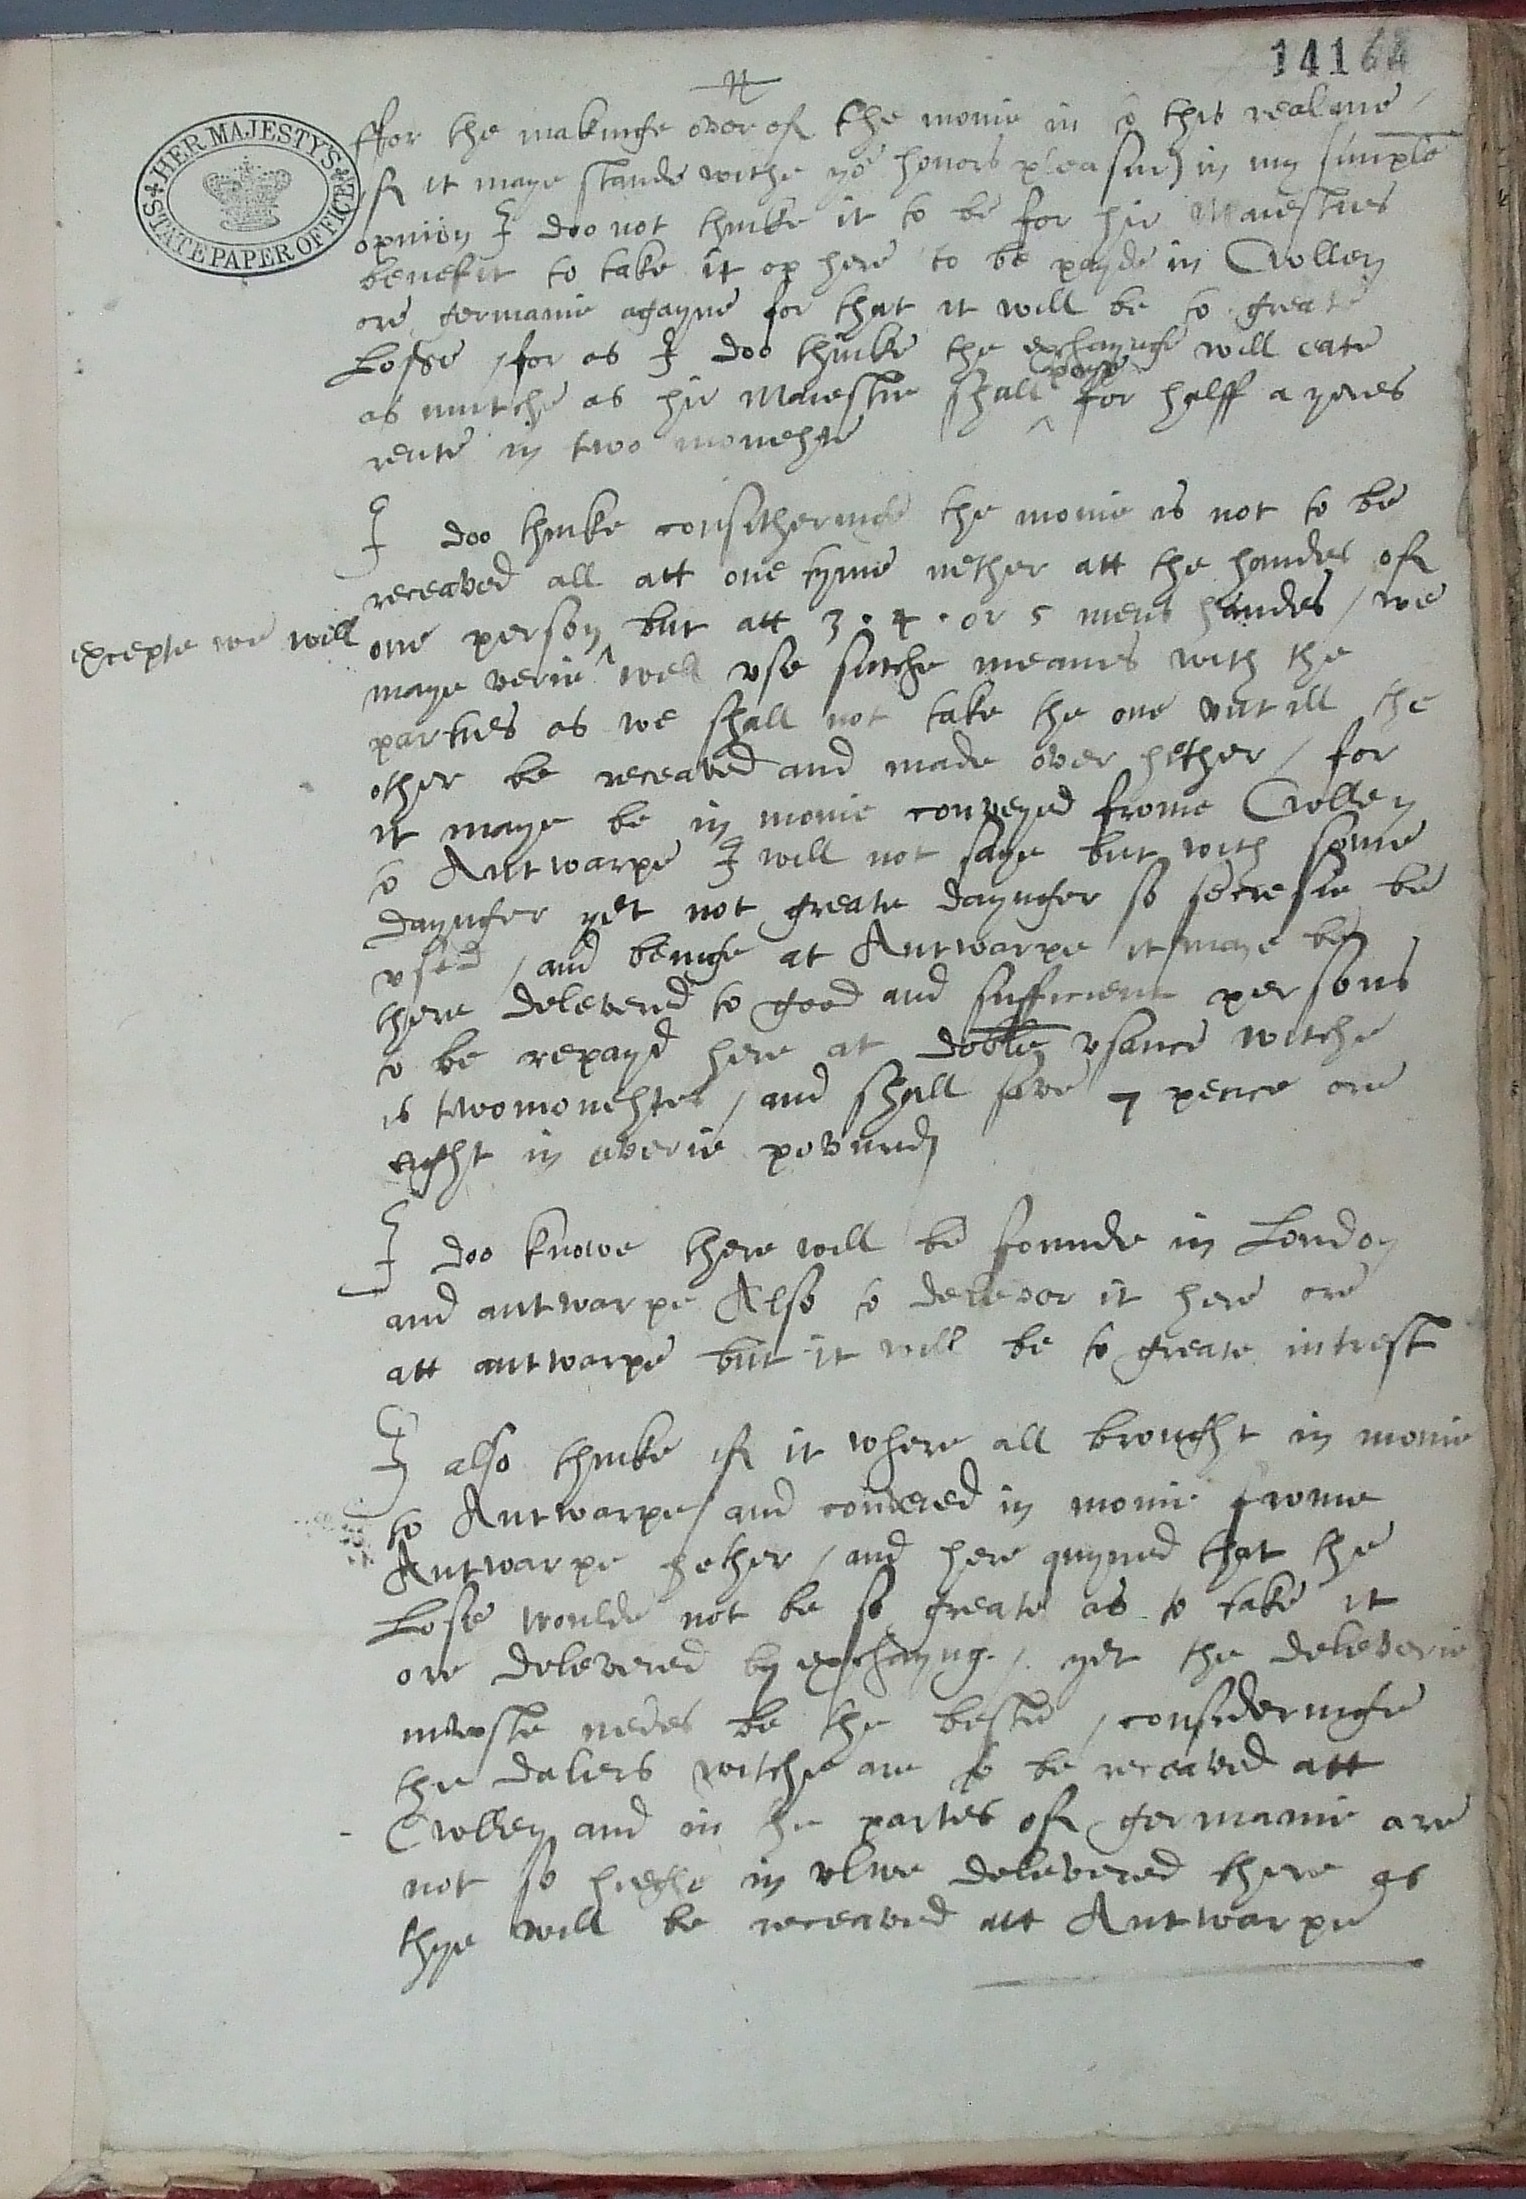 14164
HER MAJESTY'S STATE PAPER OFFICE
ffor the makinge over of the monie in to this realme /
if it maye stande withe yor honors pleasure) in my simple
opinion I doo not thinke it to be for hir Maiesties
benefit to take it op here to be payde in Collen
ore germanie agayne for that it will be to greate
Losse / for as I doo thinke the exchaynge will eate
as mutche as hir Maiestie shall ^ paye for halff a yeres
rente in two monehte
I doo thinke consitheringe the monie is not to be
receaved all att one tyme nether att the handes of
one person but att 3 . 4 . or 5 mens handes / we
excepte we will
maye verie ^ well vse sutche meanes with the
parties as we shall not take the one vntill the
other be receaved and made over hether / for
it maye be in monie conveyed frome Collen
to Antwarpe I will not saye but with some
daynger yet not greate daynger so secresie be
vsed / and beinge at Antwarpe it maye be
there delevered to good and sufficient persons
to be repayd here at doble vsance witche
is two monehtes / and shall save 7 pence ore
eight in everie povnd
I doo knowe there will be founde in London
and antwarpe Also to delever it here ore
att antwarpe but it will be to greate intrest
I also thinke if it where all brought in monie
to Antwarpe / and conveed in monie frome
Antwarpe hether / and here quyned that the
Lose woulde not be so greate as to take it
ore delevered by exchayng / yet the deleverie
muste nedes be the beste / consideringe
the dalers witche are to be receaved att
Collen and in the partes of germanie are
not so hieghe in vlwe delevered there as
thye will be receaved att Antwarpe